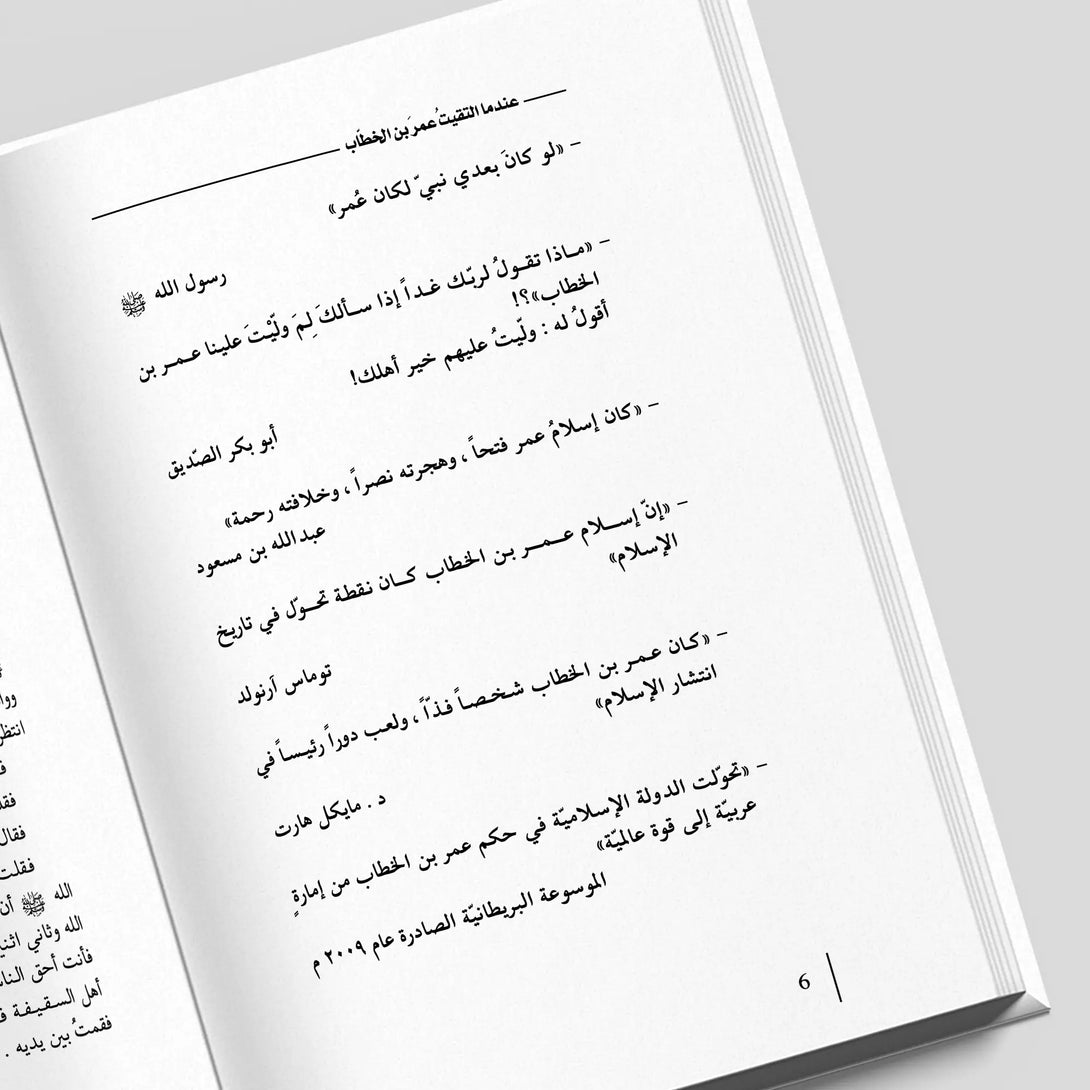 عندما التقيتُ عمرَ بن الخطّاب
– «لو كانَ بعدي نبيّ لكان عُمر»
رسول الله ﷺ
– «ماذا تقولُ لربّك غداً إذا سألكَ لِمَ ولّيْتَ علينا عمر بن
الخطاب»؟!
أقولُ له : ولّيتُ عليهم خير أهلك!
أبو بكر الصّديق
– «كان إسلامُ عمر فتحاً ، وهجرته نصراً ، وخلافته رحمة»
عبدالله بن مسعود
– «إنّ إسلام عمر بن الخطاب كان نقطة تحوّل في تاريخ
الإسلام»
توماس آرنولد
– «كان عمر بن الخطاب شخصاً فذّاً ، ولعب دوراً رئيساً في
انتشار الإسلام»
د . مايكل هارت
– «تحوّلت الدولة الإسلاميّة في حكم عمر بن الخطاب من إمارةٍ
عربيّة إلى قوة عالميّة»
الموسوعة البريطانيّة الصادرة عام ٢٠٠٩ م
6
انتظر
فقال
فقلت
الله ﷺ أن
الله وثاني
فأنت أحق
أهل السقيفة
فقمتُ بين يديه .